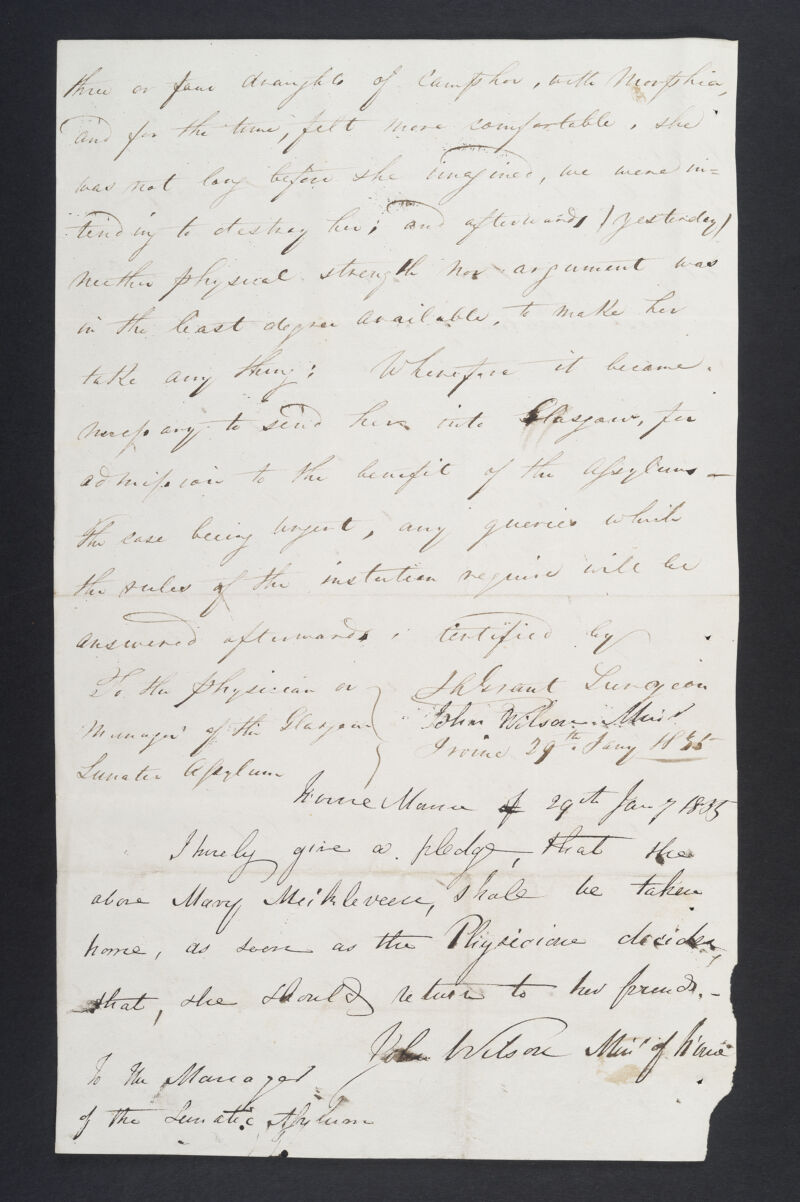 three or four draughts of Camphor, with Morphia,
and for the time, felt more comfortable. she
was not long before she imagined, we were in=
tending to destroy her; and afterwards (yesterday)
neither physical strength nor argument was
in the least degree available, to make her
take any thing: Wherefore it became
necessary to send her into Glasgow, for
admission to the benefit of the Assylum—
The case being urgent, any queries which
the rules of the instution require will be
answered afterwards; Certified by
To the physician or
Manager of the Glasgow
Lunatic Assylum
Grant Surgeon
John Wilson Minr
Irvine 29th Jany 1835
Manse 29th Jany 1835
I hereby give a pledge, that the
above Mary , shall be taken
home, as soon as the Physician decides,
that, she should return to her friends.—
John Wilson Minr of
To the Manager
of the Lunatic Asylum